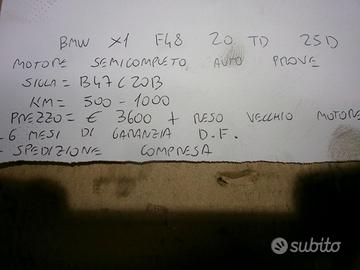 BMW X1 F48 20 TD 25D
MOTORE SEMICOMPLETO AUTO PROVE
SIGLA = B47C20B
KM = 500 - 1000
PREZZO = € 3600 + RESO VECCHIO MOTORE
- 6 MESI DI GARANZIA D.F.
- SPEDIZIONE COMPRESA
subito